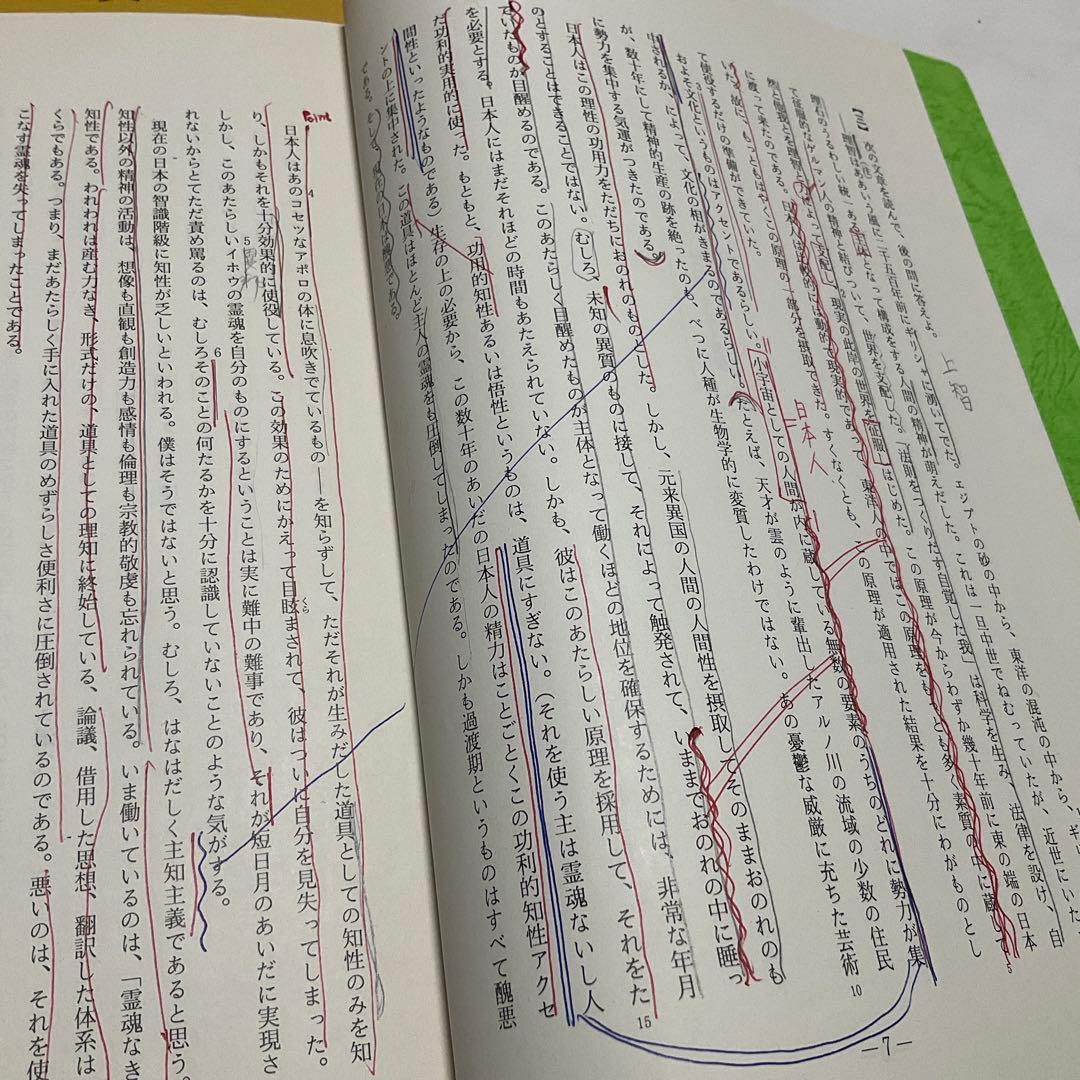 【三】 次の文章を読んで、後の間に答えよ。
上智
(注)
――理智はああいう風に二千五百年前にギリシャに湧いてでた。エジプトの砂の中から、東洋の混沌の中から、ギリ
理石のうるわしい統一ある
となって構成をする人間の精神が萌えだした。これは一旦中世でねむっていたが、近世にいた
て征服的なゲルマン人の精神と結びついて、世界を支配した。「法則をつくりだす自覚した我」は科学を生み、法律を設け、自
然と他現とを理智と
によって支配し、現実の此岸の世界を「征服」しはじめた。この原理が今からわずか幾十年前に東の端の日本
に渡って来たのである。日本人は比較的には動的で現実的であって、東洋人の中ではこの原理をもっとも多く素質の中に蔵して
いた。故に、もっともはやくこの原理の一部分を摂取できた。すくなくとも、この原理が適用された結果を十分にわがものとし
て使役するだけの準備ができていた。
日本人
3
およそ文化というものはアクセントであるらしい。小宇宙としての人間が内に蔵している無数の要素のうちのどれに勢力が集
中されるか、によって、文化の相がきまるのであるらしい。たとえば、天才が雲のように輩出したアルノ川の流域の少数の住民
が、数十年にして精神的生産の跡を絶ったのも、べつに人種が生物学的に変質したわけではない。あの憂鬱な威厳に充ちた芸術
10
に勢力を集中する気運がつきたのである。
日本人はこの理性の功用力をただちにおのれのものとした。しかし、元来異国の人間の人間性を摂取してそのままおのれのも
のとすることはできることではない。むしろ、未知の異質のものに接して、それによって触発されて、いままでおのれの中に睡っ
ていたものが目醒めるのである。このあたらしく目醒めたものが主体となって働くほどの地位を確保するためには、非常な年月
を必要とする。日本人にはまだそれほどの時間もあたえられていない。しかも、彼はこのあたらしい原理を採用して、それをた
15
だ功利的実用的に使った。もともと、功用的知性あるいは悟性というものは、道具にすぎない。(それを使う主は霊魂ないし人
間性といったようなものである)生存の上の必要から、この数十年のあいだの日本人の精力はことごとくこの功利的知性アクセ
ントの上に集中された。この道具はほとんど主人の霊魂をも圧倒してしまったのである。しかも過渡期というものはすべて醜悪
である。そして、現在の日本は過渡である。
―7―
Point
4
日本人はものコセツなアポロの体に息吹きでているもの――を知らずして、ただそれが生みだした道具としての知性のみを知
り、しかもそれを十分効果的に使役している。この効果のためにかえって目眩まされて、彼はついに自分を見失ってしまった。
くら
5
しかし、このあたらしいイホウの霊魂を自分のものにするということは実に難中の難事であり、それが短日月のあいだに実現さ
6
れないからとてただ責め罵るのは、むしろそのことの何たるかを十分に認識していないことのような気がする。
現在の日本の智識階級に知性が乏しいといわれる。僕はそうではないと思う。むしろ、はなはだしく主知主義であると思う。
知性以外の精神の活動は、想像も直観も創造力も感情も倫理も宗教的敬虔も忘れられている。いま働いているのは、「霊魂なき
知性である。われわれは産む力なき、形式だけの、道具としての理知に終始している、論議、借用した思想、翻訳した体系は
くらでもある。つまり、まだあたらしく手に入れた道具のめずらしさ便利さに圧倒されているのである。悪いのは、それを使
こなす霊魂を失ってしまったことである。